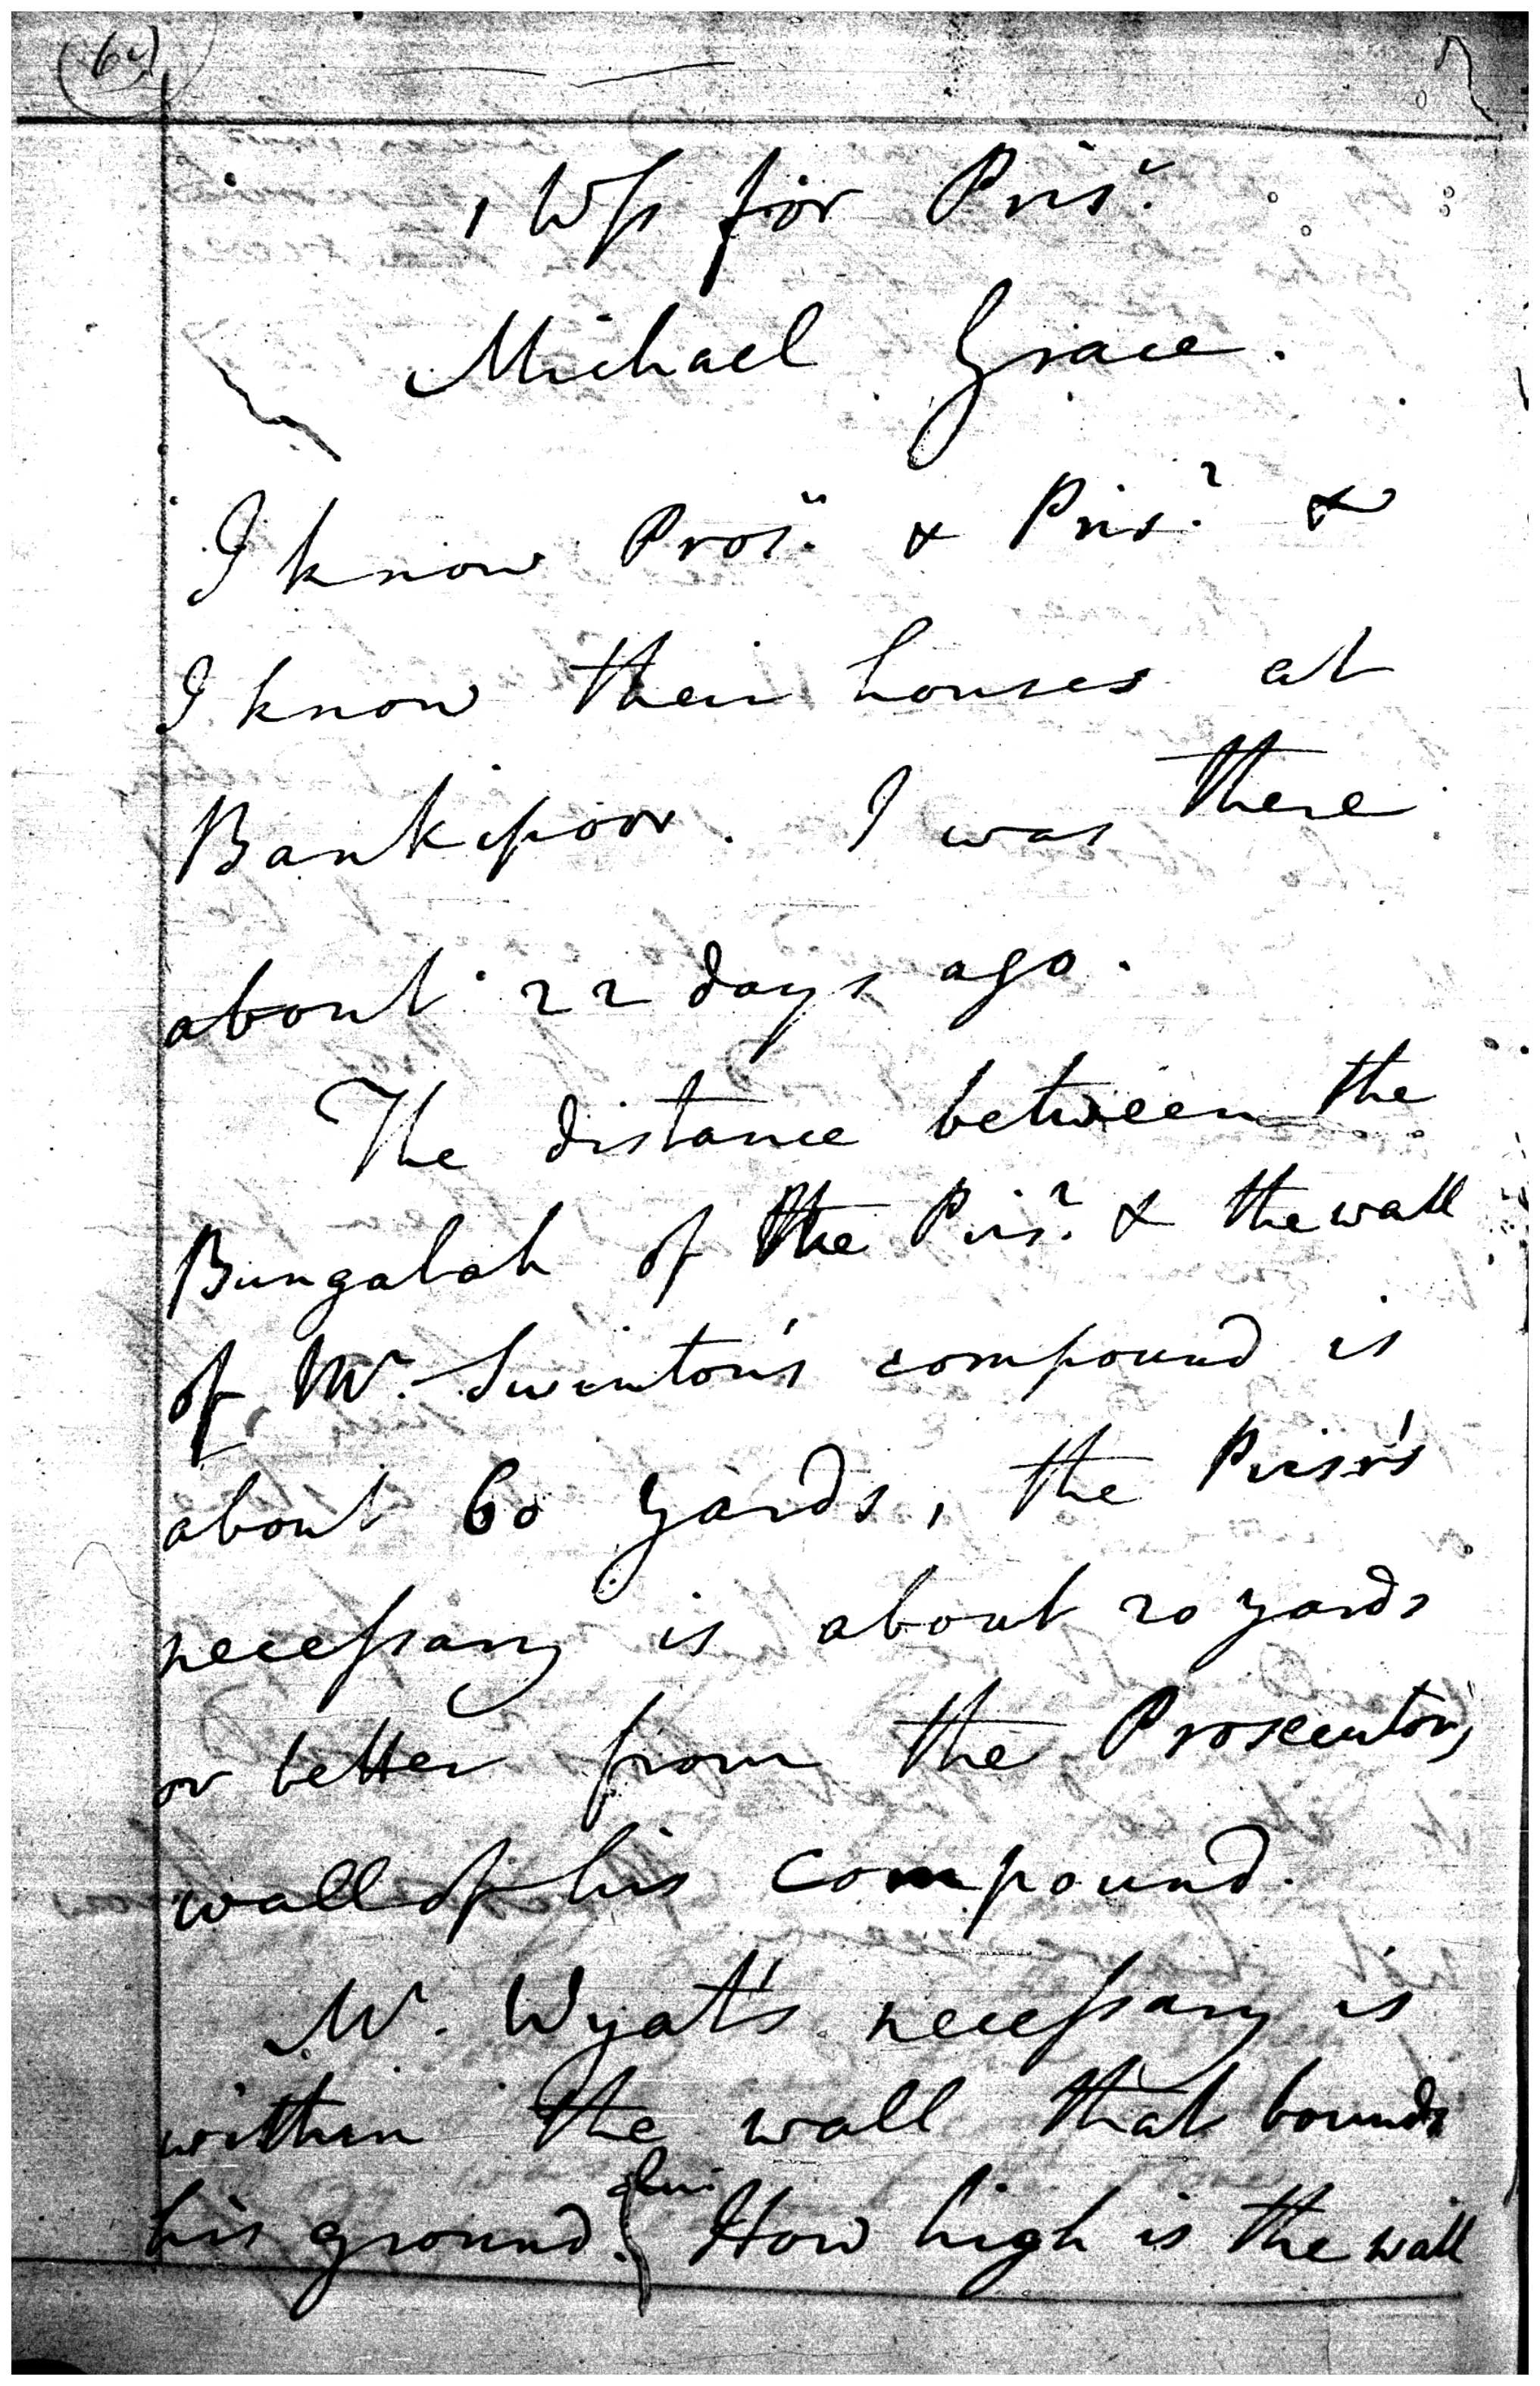 (60)
1 Wss for Prisr.
Michael Grace.
I know Prosr. & Prisr. &
I know their houses at
Bankipoor. I was there
about 22 days ago.
The distance between the
Bungalah of the Prisr. & the wall
of Mr. Swinton's compound is
about 60 yards, the Prisr's
necessary is about 20 yards
or better from the Prosecutor's
wall of his compound.
Mr. Wyat's necessary is
within the wall that bounds
his ground. How high is the wall